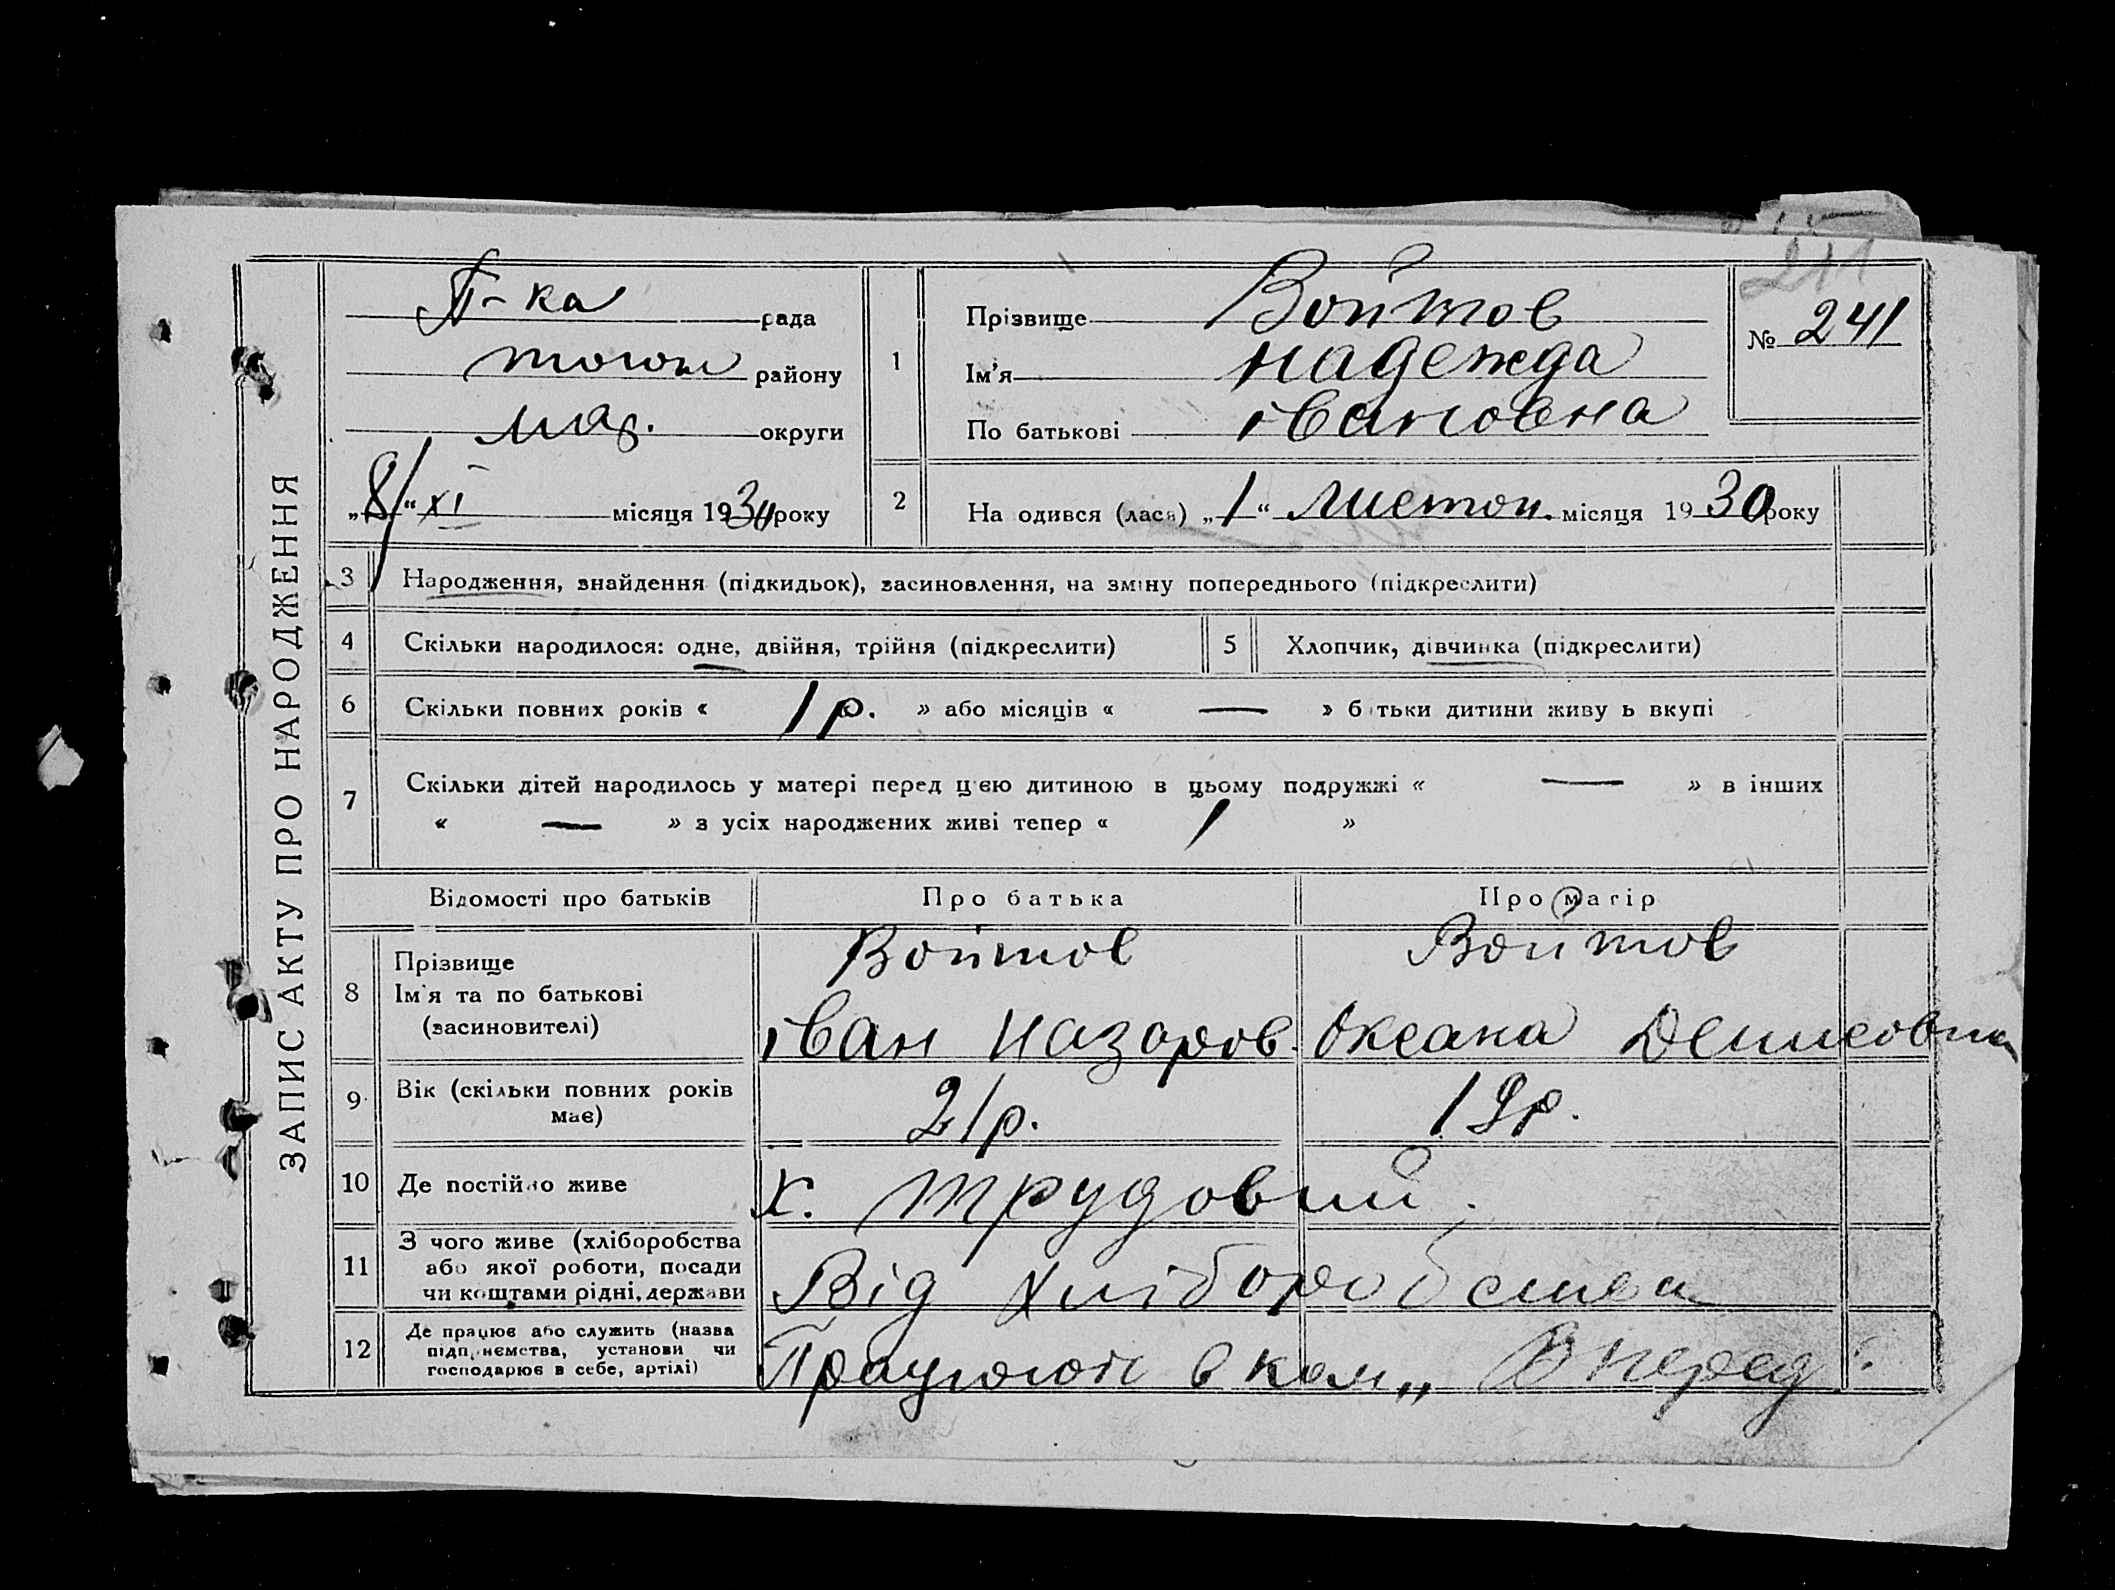 ЗАПИС АКТУ ПРО НАРОДЖЕННЯ
П-ка рада
району
мар. округи
„8/“ XI місяця 1930 року
1
Прізвище Войтов
Ім’я надежда
По батькові івановна
№ 241
241
2
На одився (лася) „1“ листоп. місяця 1930 року
3 Народження, знайдення (підкидьок), засиновлення, на зміну попереднього (підкреслити)
4 Скільки народилося: одне, двійня, трійня (підкреслити)
5 Хлопчик, дівчинка (підкреслити)
6 Скільки повних років « 1 р. » або місяців « — » б тьки дитини живу ь вкупі
7 Скільки дітей народилось у матері перед ц'єю дитиною в цьому подружжі « — » в інших
« — » з усіх народжених живі тепер « 1 »
Відомості про батьків Про батька Про матір
8 Прізвище
Ім’я та по батькові
(засиновителі)
Войтов
іван Назаров.
Войтов
Оксана Денисовна
9 Вік (скільки повних років
має)
21 р.
19 р.
10 Де постійно живе х. трудовий.
11 З чого живе (хліборобства
або якої роботи, посади
чи коштами рідні, держави
Від хліборобства
12 Де працює або служить (назва
підприємства, установи чи
господарює в себе, артілі)
Працюют в ком „Вперед“.